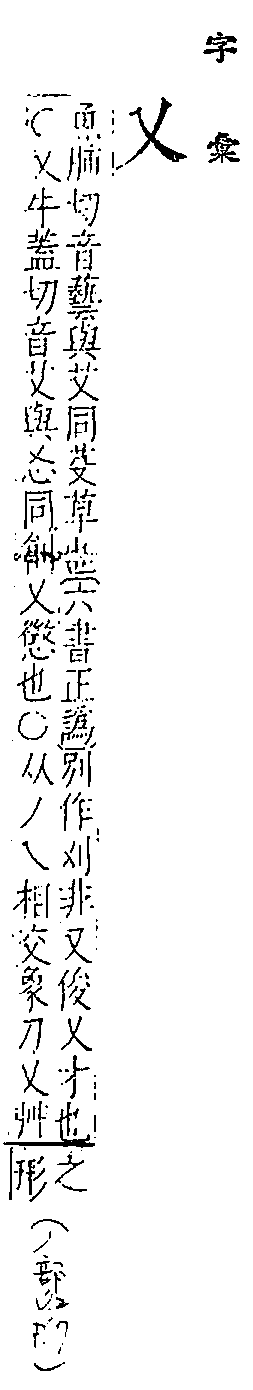 字彙
乂
魚肺切音藝與艾同芟草也六書正譌別作刈非又俊乂才也
○乂牛蓋切音艾與忞同創乂懲也○从丿乀相交象刀乂艸之
形